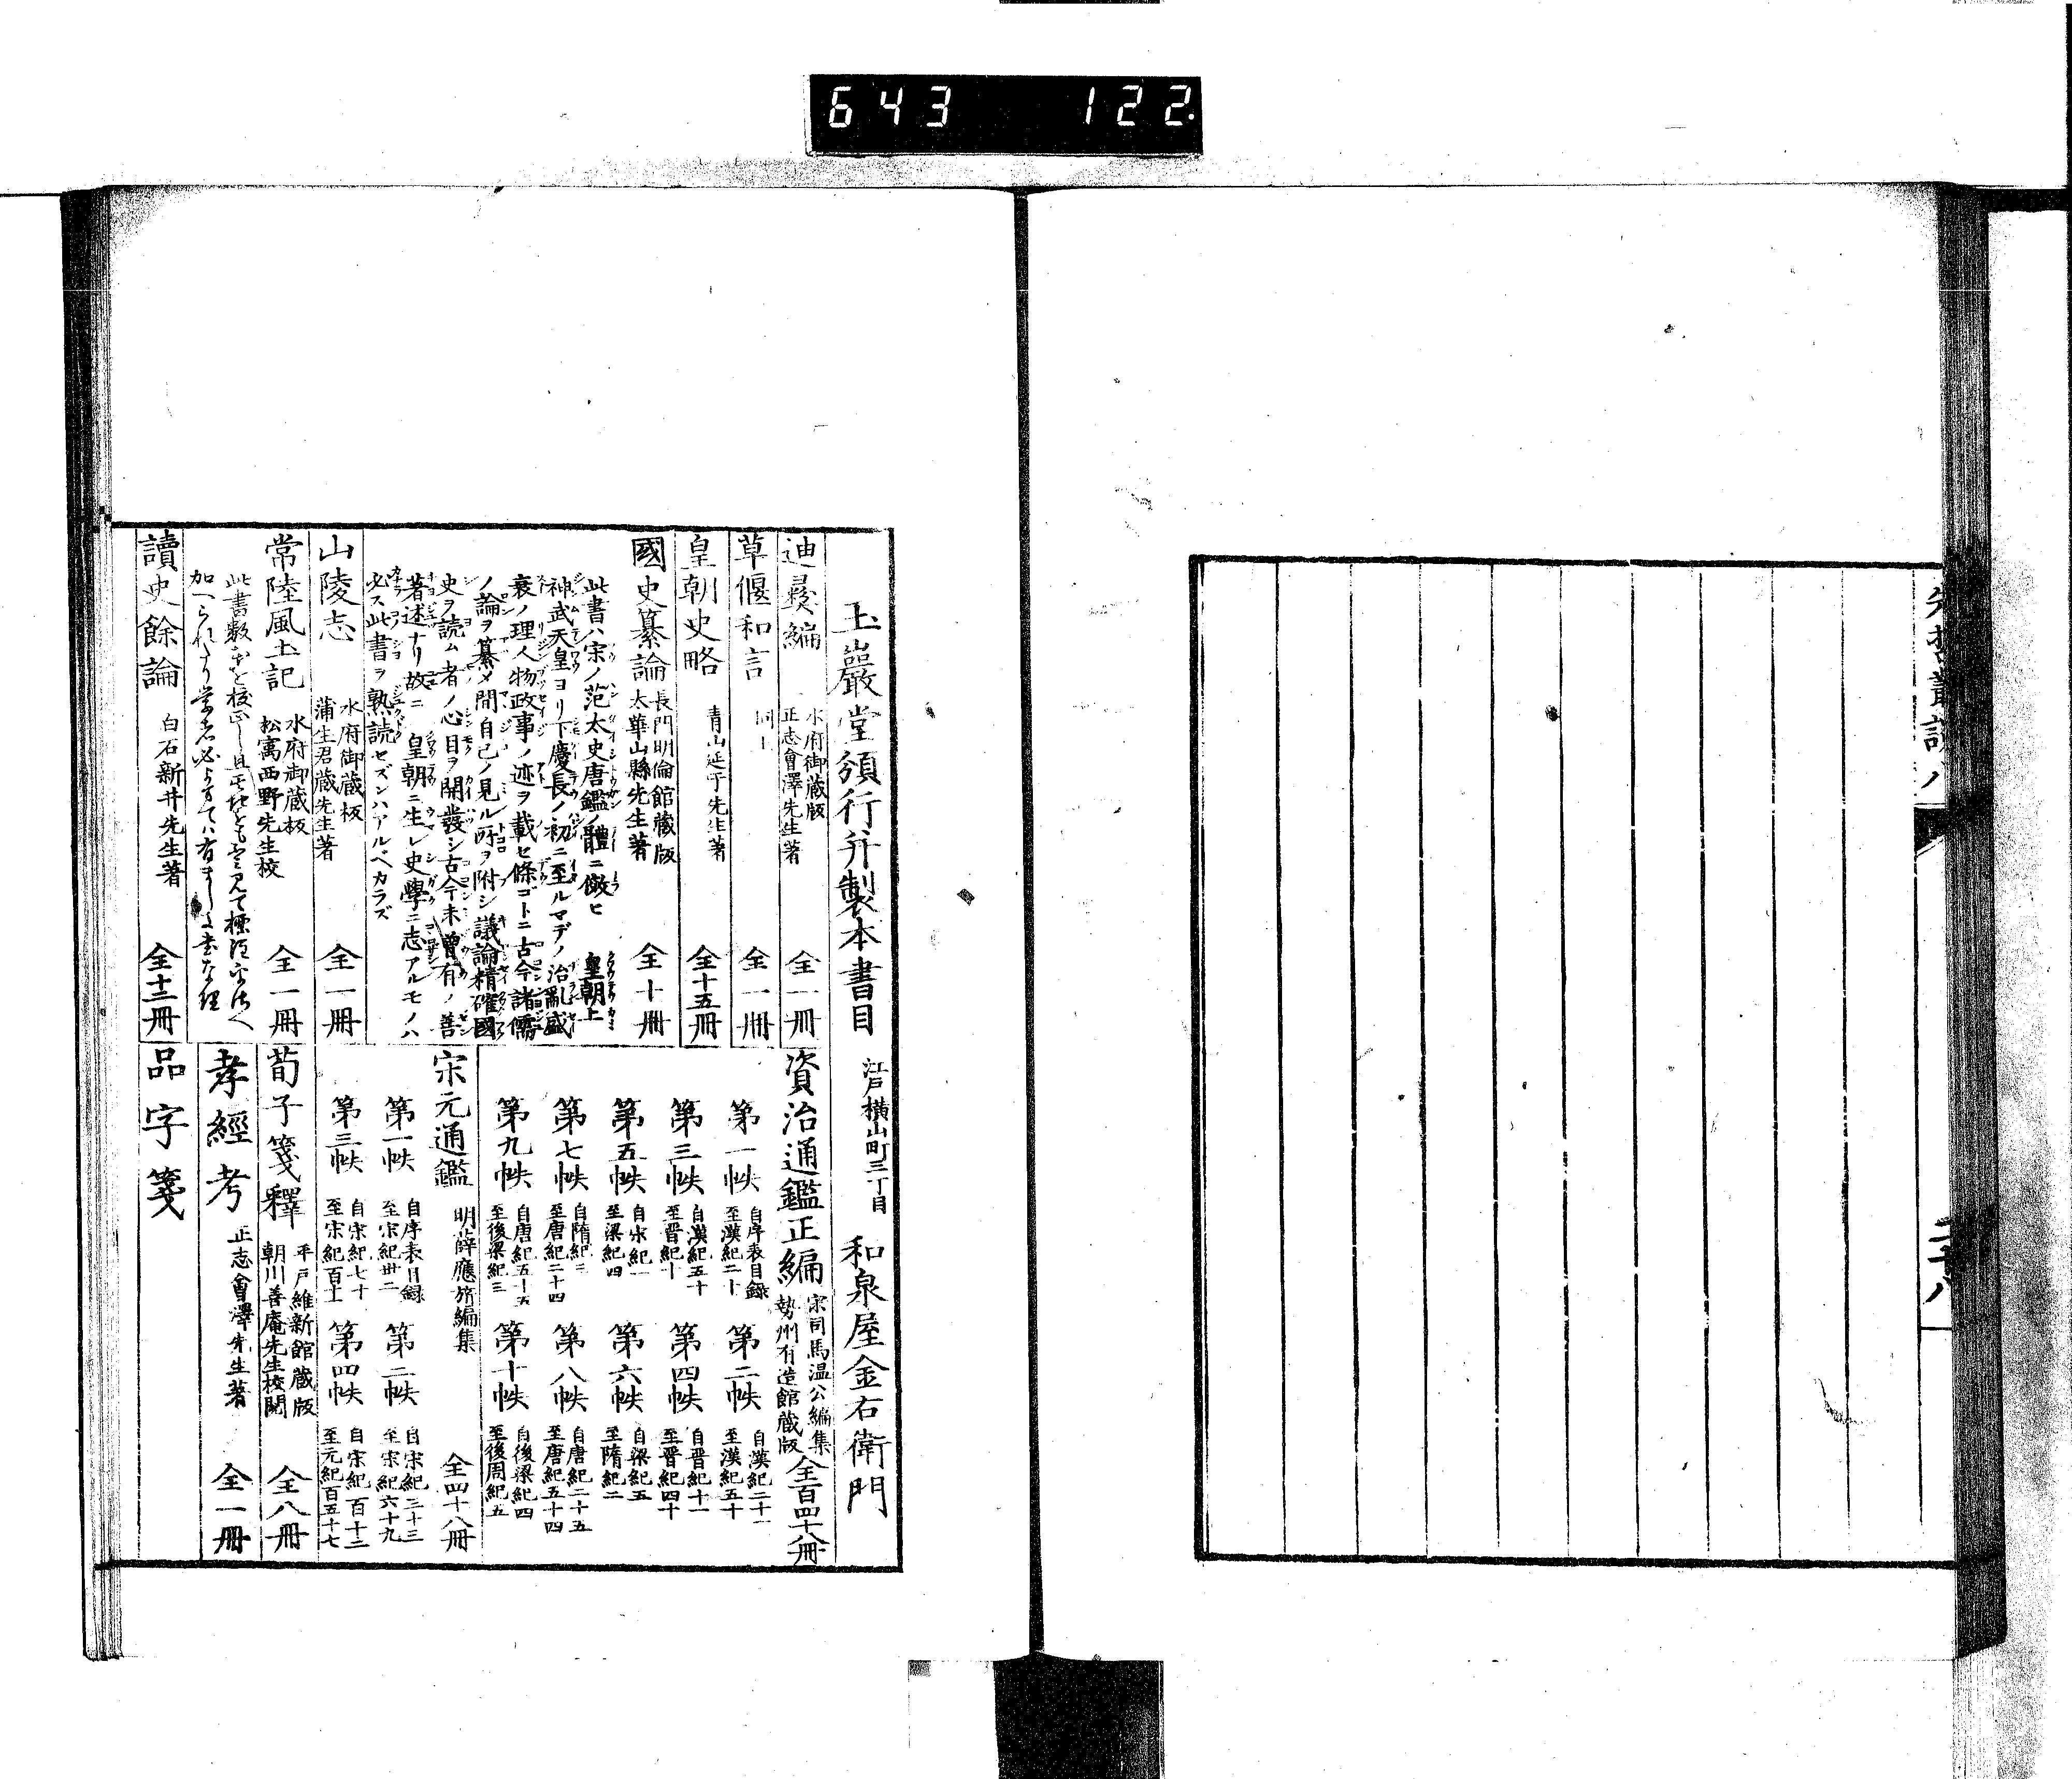 643 122.
先哲叢談八
二十八
玉巖堂頒行并製本書目 江戸横山町三丁目 和泉屋金右衛門
迪彜編 水府御蔵版 正志會澤先生著 全一冊
草偃和言 同上 全一冊
皇朝史略 青山延于先生著 全十五冊
國史纂論 長門明倫館藏版 太華山縣先生著 全十冊
此書ハ宋ノ范太史唐鑑ノ體ニ倣ヒ 皇朝上
神武天皇ヨリ下慶長ノ初ニ至ルマデノ治亂盛
衰ノ理人物政事ノ迹ヲ載セ條ゴトニ古今諸儒
ノ論ヲ纂メ間自己ノ見ル所ヲ附シ議論精確國
史ヲ読ム者ノ心目ヲ開發シ古今未曾有ノ善
著述ナリ故ニ 皇朝ニ生レ史學ニ志アルモノハ
必ス此書ヲ熟読セズンハアルヘカラズ
山陵志 水府御蔵板 蒲生君蔵先生著 全一冊
常陸風土記 水府御蔵板 松寓西野先生校 全一冊
此書數本を校正し
讀史餘論 白石新井先生著 全十二冊
資治通鑑正編 宋司馬温公編集 勢州有造館蔵版 全百四十八冊
第一帙 自序表目録 至漢紀二十 第二帙 自漢紀二十一 至漢紀五十
第三帙 自漢紀五十 至晋紀十 第四帙 自晋紀十一 至晋紀四十
第五帙 自宋紀一 至梁紀四 第六帙 自梁紀五 至隋紀二
第七帙 自隋紀三 至唐紀二十四 第八帙 自唐紀二十五 至唐紀五十四
第九帙 自唐紀五十五 至後梁紀三 第十帙 自後梁紀四 至後周紀五
宋元通鑑 明薛應旂編集 全四十八冊
第一帙 自序表目録 至宋紀卅二 第二帙 自宋紀三十三 至宋紀六十九
第三帙 自宋紀七十 至宋紀百十一 第四帙 自宋紀百十二 至元紀百五十七
荀子箋釋 平戸維新館蔵版 朝川善庵先生校閲 全八冊
孝經考 正志會澤先生著 全一冊
品字箋